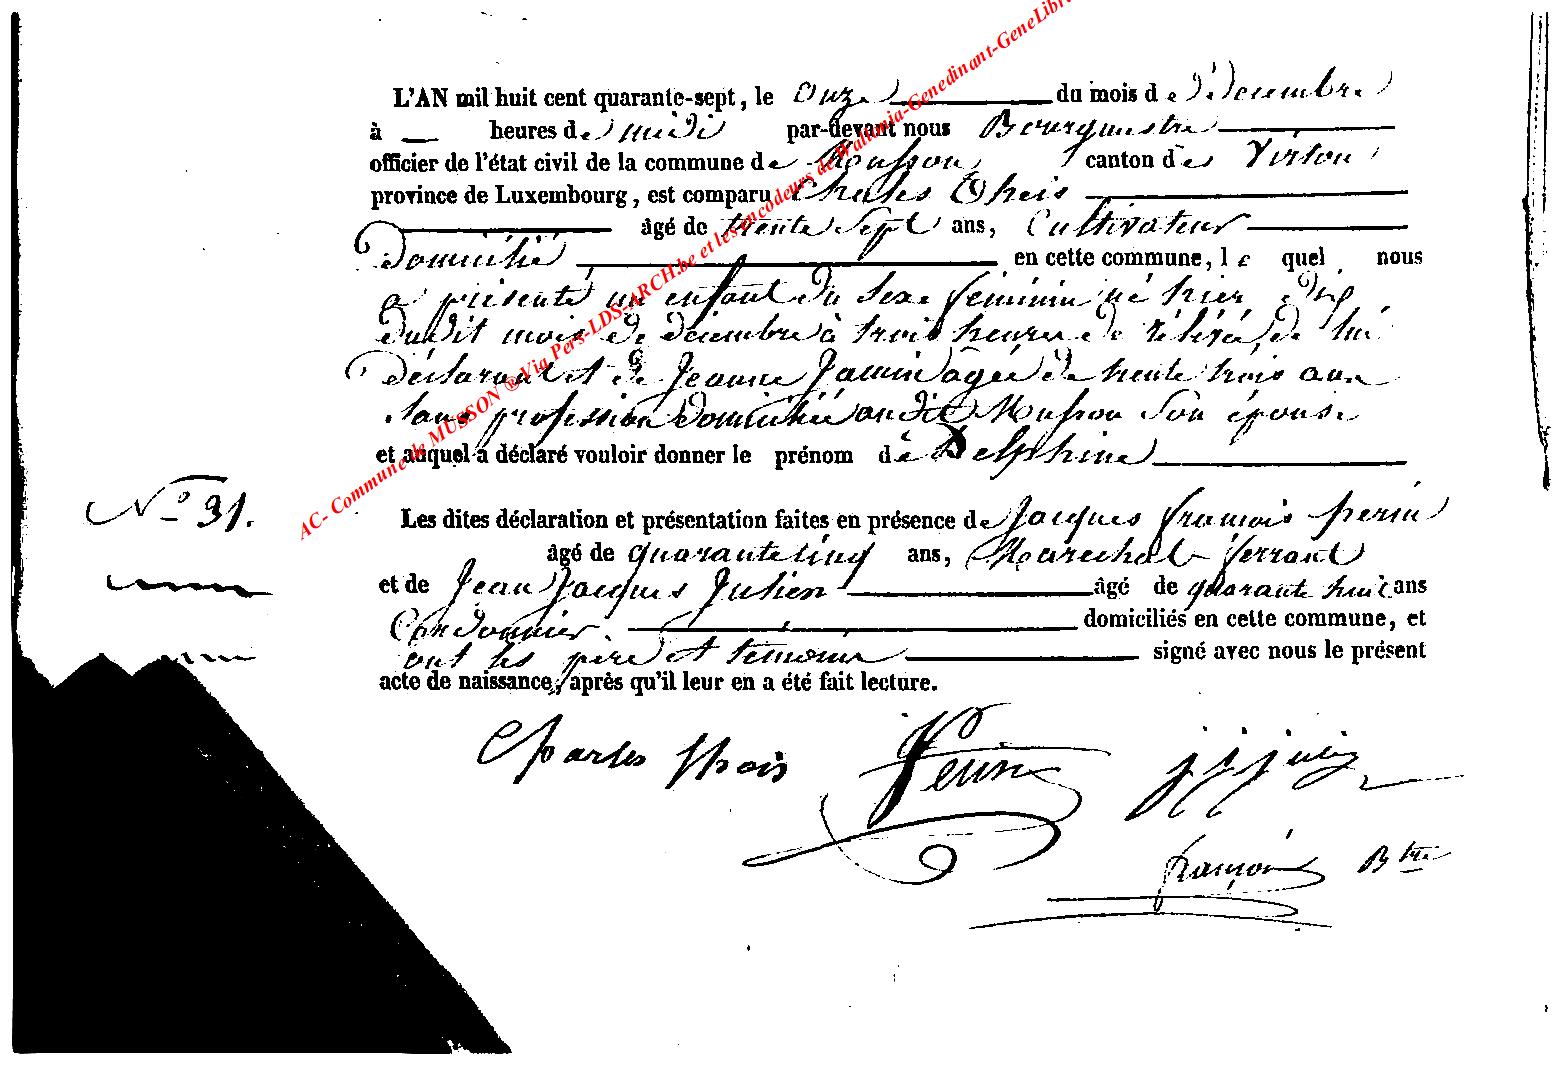 L'AN mil huit cent quarante-sept, le Onze du mois de Décembre
à heures de midi par-devant nous Bourgmestre
officier de l'état civil de la commune de Musson canton de Virton
province de Luxembourg, est comparu Charles Theis
âgé de trente Sept ans, Cultivateur
Domicilié en cette commune, le quel nous
a présenté un enfant du Sexe féminin né hier dix
dudit mois de décembre à trois heures de rélévée de lui
Déclarant et de Jeanne Jamin âgée de trente trois ans
Sans profession domiciliée audit Musson Son épouse
et auquel a déclaré vouloir donner le prénom de Delphine
N° 31.
Les dites déclaration et présentation faites en présence de Jacques françois perin
âgé de quarante cinq ans, Marechal ferrant
et de Jean Jacques Julien âgé de quarante huit ans
Cordonnier. domiciliés en cette commune, et
ont les père et témoins signé avec nous le présent
acte de naissance, après qu'il leur en a été fait lecture.
Charles theis Perin j j julien
françois Btre
AC- Commune de MUSSON ® Via Pers-LDS-ARCH.be et les encodeurs de Wallonia-Genedinant-GeneLibre